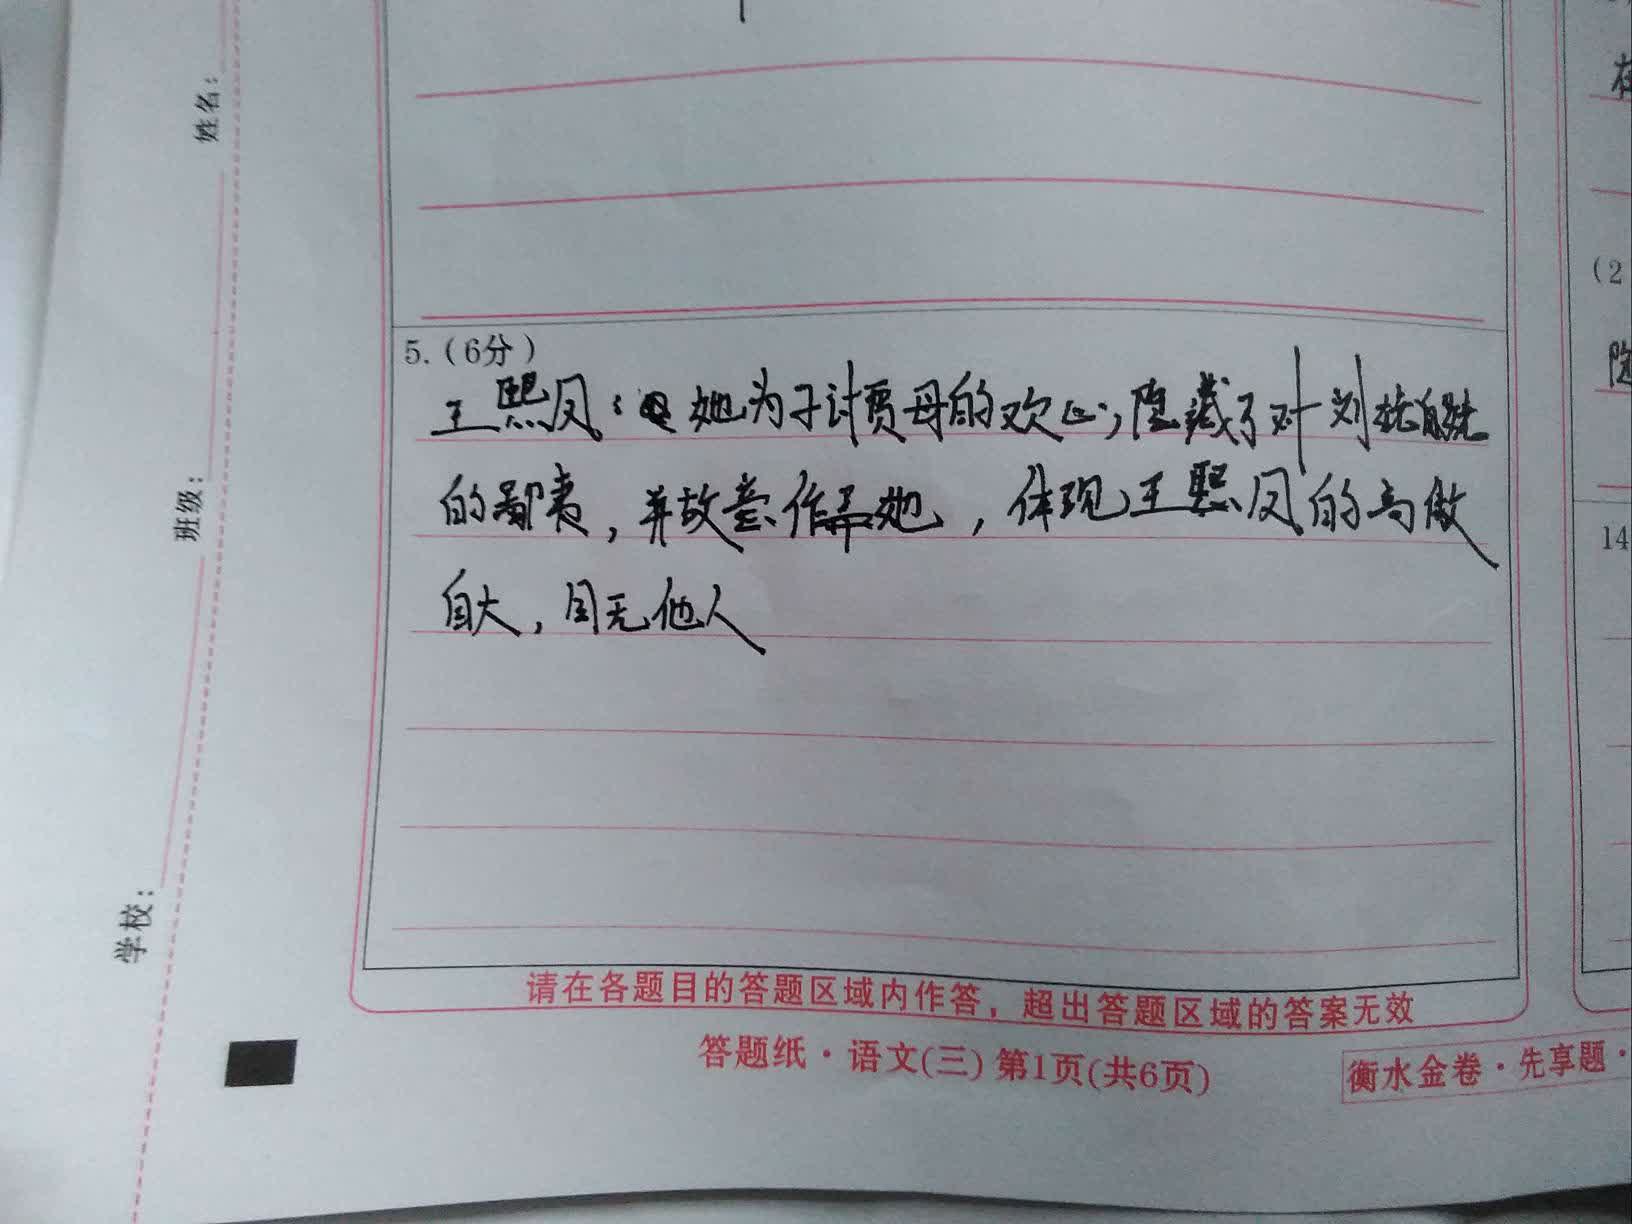 姓名:
班级:
学校:
5.(6分)
王熙凤:她为了讨贾母的欢心,隐藏了对刘姥姥
的鄙夷,并故意作弄她,体现王熙凤的高傲
自大,目无他人
请在各题目的答题区域内作答,超出答题区域的答案无效
答题纸·语文(三) 第1页(共6页)
衡水金卷·先享题·
(2
14